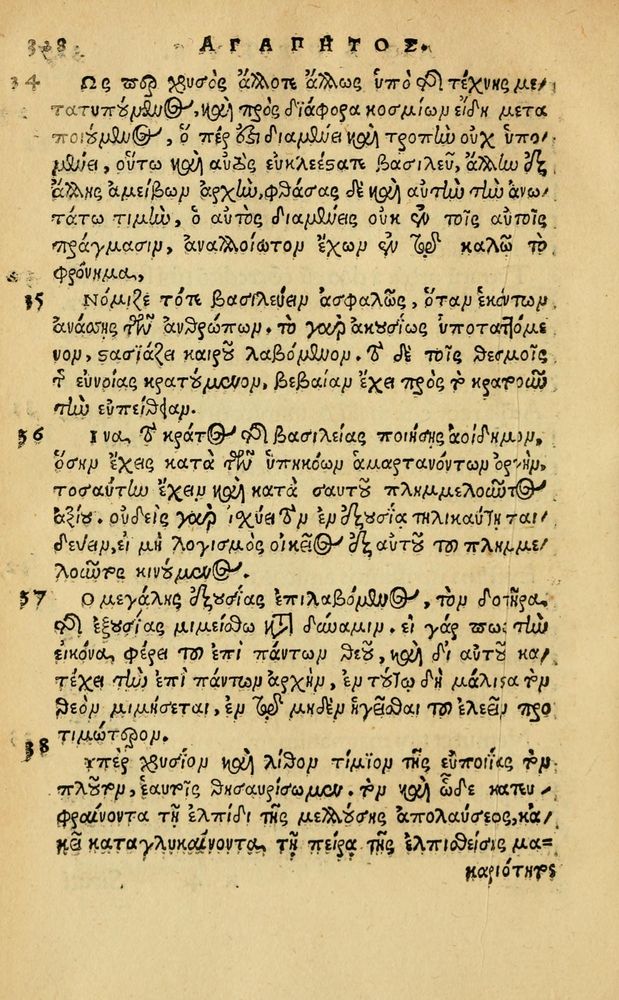 338 ΑΓΑΠΗΤΟΣ.
34 Ὡς περ χρυσὸς ἄλλοτε ἄλλως ὑπὸ τῆς τέχνης με-
τατυπούμενος, καὶ πρὸς διάφορα κοσμίων εἴδη μετα
ποιούμενος, ὅ πέρ ἐστι διαμένει καὶ τροπὴν οὐχ ὑπο-
μένει, οὕτω καὶ αὐτὸς εὐκλεέστατε βασιλεῦ, ἄλλην ἐξ
ἄλλης ἀμείβων ἀρχὴν, φθάσας δὲ καὶ αὐτὴν τὴν ἀνω-
τάτω τιμὴν, ὁ αὐτὸς διαμένεις οὐκ ἐν τοῖς αὐτοῖς
πράγμασιν, ἀναλλοίωτον ἔχων ἐν τῷ καλῷ τὸ
φρόνημα,
35 Νόμιζε τότε βασιλεύειν ἀσφαλῶς, ὅταν ἑκόντων
ἀνάσσης τῶν ἀνθρώπων. τὸ γὰρ ἀκουσίως ὑποταττόμε
νον, στασιάζει καιροῦ λαβόμενον. τὸ δὲ τοῖς θεσμοῖς
τῆς εὐνοίας κρατούμενον, βεβαίαν ἔχει πρὸς τὸ κρατοῦν
τὴν εὐπείθειαν.
36 Ἵνα τὸ κράτος τῆς βασιλείας ποιήσης ἀοίδιμον,
ὅσην ἔχεις κατὰ τῶν ὑπηκόων ἁμαρτανόντων ὀργὴν,
τοσαύτην ἔχειν καὶ κατὰ σαυτοῦ πλημμελοῦντος
ἀξίου. οὐδεὶς γὰρ ἰσχύει τὸν ἐν ἐξουσία τηλικαύτη παι
δεύειν, εἰ μὴ λογισμὸς οἰκεῖος ἐξ αὐτοῦ τοῦ πλημμε-
λοῦντος κινούμενος.
37 Ὁ μεγάλης ἐξουσίας ἐπιλαβόμενος, τὸν δοτῆρα
τῆς ἐξουσίας μιμείσθω κατὰ δύναμιν. εἰ γάρ πως τὴν
εἰκόνα φέρει τοῦ ἐπὶ πάντων θεοῦ, καὶ δι αὐτοῦ κα-
τέχει τὴν ἐπὶ πάντων ἀρχὴν, ἐν τούτῳ δὴ μάλιστα τὸν
θεὸν μιμήσεται, ἐν τῷ μηδὲν ἡγεῖσθαι τοῦ ἐλεεῖν προ
τιμώτερον.
38 Ὑπὲρ χρυσίον καὶ λίθον τίμιον τῆς εὐποιίας τὸν
πλοῦτον, ἑαυτοῖς θησαυρίσωμεν. τὸν καὶ ὧδε κατευ-
φραίνοντα τῇ ἐλπίδι τῆς μελλούσης ἀπολαύσεως, κἀ-
κεῖ καταγλυκαίνοντα, τῇ πείρα τῆς ἐλπισθείσης μα-
καριότητος